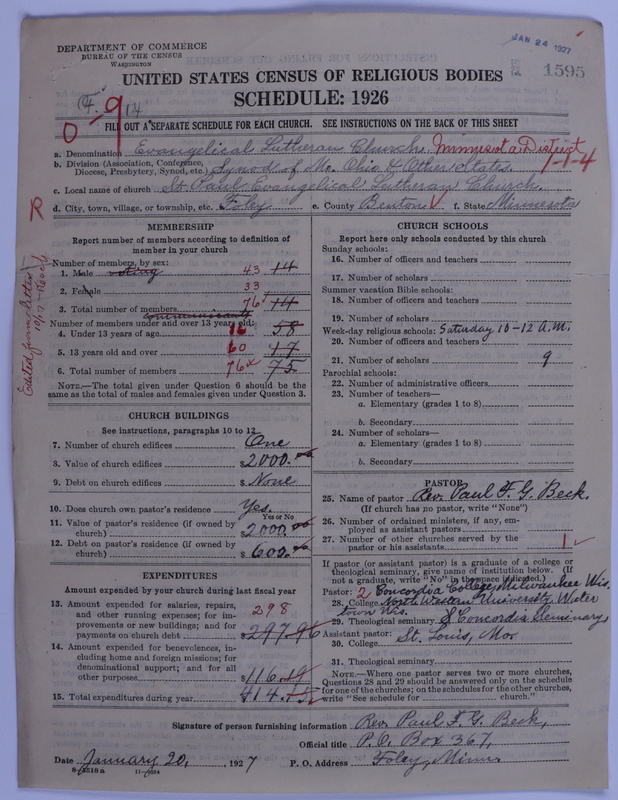 DEPARTMENT OF COMMERCE
BUREAU OF THE CENSUS
WASHINGTON
JAN 24 1927
1595
UNITED STATES CENSUS OF RELIGIOUS BODIES
SCHEDULE: 1926
0-9
14
FILL OUT A SEPARATE SCHEDULE FOR EACH CHURCH. SEE INSTRUCTIONS ON THE BACK OF THIS SHEET
a. Denomination Evangelical Lutheran Church. Minnesota District
b. Division (Association, Conference, Diocese, Presbytery, Synod, etc.) Synod of Mo. Ohio & Other States. 1-1-4
c. Local name of church St. Paul Evangelical Lutheran Church.
R d. City, town, village, or township, etc. Foley e. County Benton f. State Minnesota
MEMBERSHIP
Report number of members according to definition of
member in your church
Number of members, by sex:
1. Male voting 43 14
2. Female 33
3. Total number of members 76 14
communicants
Number of members under and over 13 years old:
4. Under 13 years of age 16 58
5. 13 years old and over 60 17
6. Total number of members 76 75
NOTE.—The total given under Question 6 should be the
same as the total of males and females given under Question 3.
CHURCH BUILDINGS
See instructions, paragraphs 10 to 12
7. Number of church edifices One
8. Value of church edifices $2000.00
9. Debt on church edifices $ None
10. Does church own pastor's residence Yes.
Yes or No
11. Value of pastor's residence (if owned by
church) $2000.00
12. Debt on pastor's residence (if owned by
church) $600.00
EXPENDITURES
Amount expended by your church during last fiscal year
13. Amount expended for salaries, repairs,
and other running expenses; for im-
provements or new buildings; and for
payments on church debt 298 $297.96
14. Amount expended for benevolences, in-
cluding home and foreign missions; for
denominational support; and for all
other purposes $116.19
15. Total expenditures during year $414.15
CHURCH SCHOOLS
Report here only schools conducted by this church
Sunday schools:
16. Number of officers and teachers
17. Number of scholars
Summer vacation Bible schools:
18. Number of officers and teachers
19. Number of scholars
Week-day religious schools: Saturday 10-12 A.M.
20. Number of officers and teachers
21. Number of scholars 9
Parochial schools:
22. Number of administrative officers
23. Number of teachers—
a. Elementary (grades 1 to 8)
b. Secondary
24. Number of scholars—
a. Elementary (grades 1 to 8)
b. Secondary
PASTOR
25. Name of pastor Rev. Paul F. G. Beck.
(If church has no pastor, write "None")
26. Number of ordained ministers, if any, em-
ployed as assistant pastors
27. Number of other churches served by the
pastor or his assistants 1
If pastor (or assistant pastor) is a graduate of a college or
theological seminary, give name of institution below. (If
not a graduate, write "No" in the space indicated.)
Pastor: 2 Concordia College, Milwaukee Wis.
28. College Northwestern University Water
town Wis.
29. Theological seminary & Concordia Seminary,
Assistant pastor: St. Louis, Mo.
30. College
31. Theological seminary
NOTE.—Where one pastor serves two or more churches,
Questions 28 and 29 should be answered only on the schedule
for one of the churches; on the schedules for the other churches,
write "See schedule for church."
Signature of person furnishing information Rev. Paul F. G. Beck,
Official title P.O. Box 367,
Date January 20, 1927 P. O. Address Foley, Minn.
8-4518a 11-9034